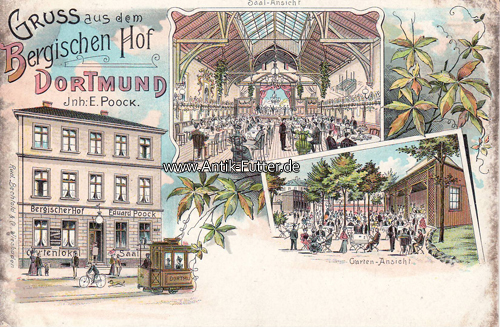 Saal-Ansicht
GRUSS aus dem
Bergischen Hof
DORTMUND
Jnh: E. POOCK.
www.Antik-Futter.de
Bergischer Hof Eduard Poock
Gartenlokal Saal
Garten-Ansicht